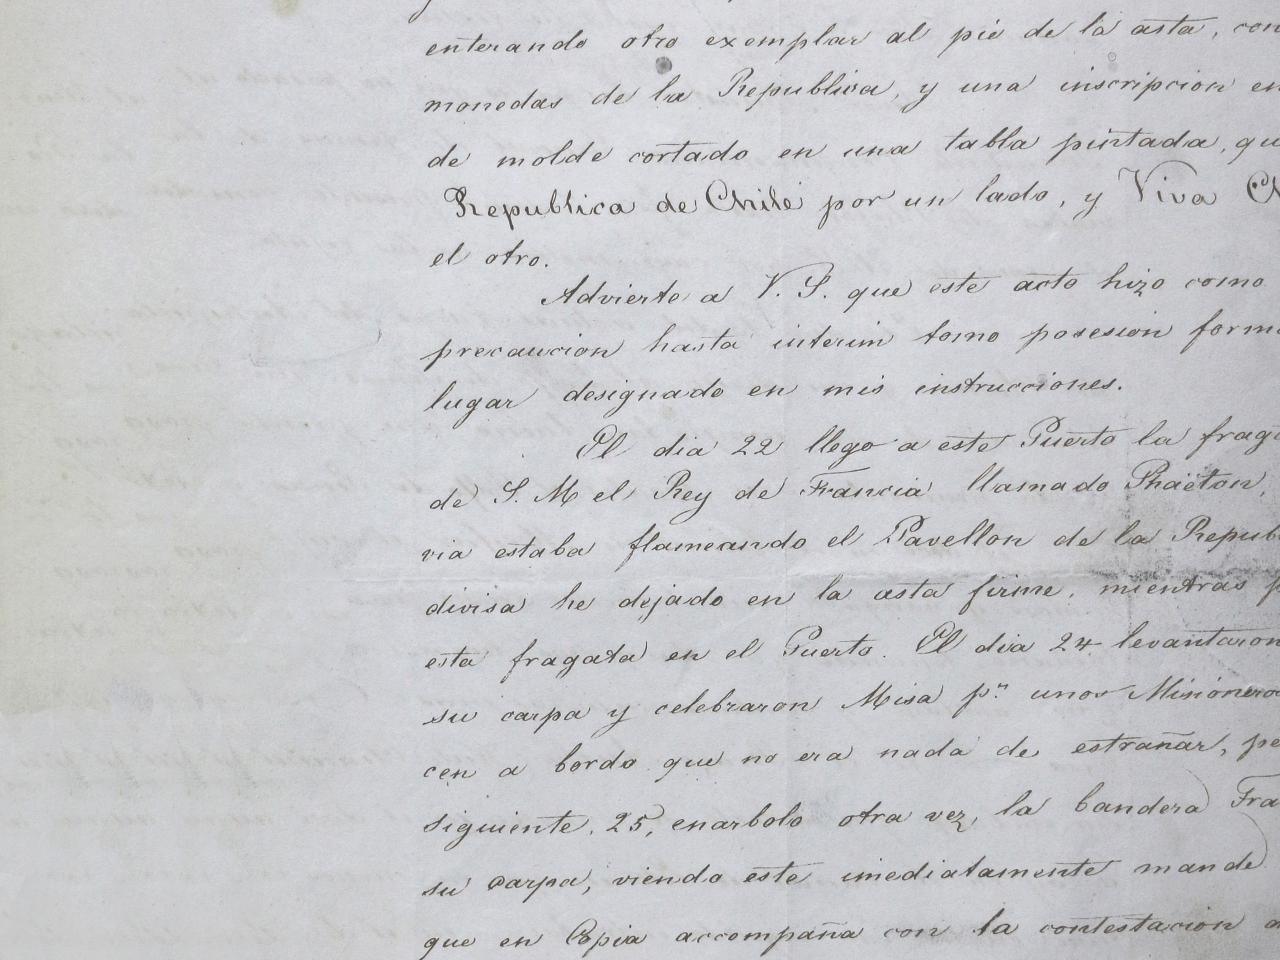 enterando otro exemplar al pié de la asta, con
monedas de la Republica, y una inscripcion en
de molde cortado en una tabla pintada, qu
Republica de Chile por un lado, y Viva Ch
el otro.
Advierte a V. S. que este acto hizo como
precaucion hasta interim tomo posesion form
lugar designado en mis instrucciones.
El dia 22 llego a este Puerto la frag
de S. M el Rey de Francia llamado Phaeton,
via estaba flameando el Pavellon de la Repub
divisa he dejado en la asta firme, mientras p
esta fragata en el Puerto. El dia 24 levantaron
su carpa y celebraron Misa pn unos Misionero
cen a bordo que no era nada de estrañar, pe
siguiente, 25, enarbolo otra vez, la bandera Fra
su carpa, viendo este imediatamente mande
que en Copia accompaña con la contestacion